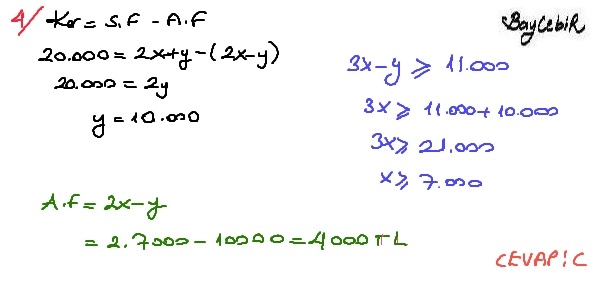 4/ Kar = S.F - A.F
BAyCebiR
20.000 = 2x+y-(2x-y)
20.000 = 2y
y = 10.000
3x-y ⩾ 11.000
3x ⩾ 11.000+10.000
3x ⩾ 21.000
x ⩾ 7.000
A.F = 2x-y
= 2.7000 - 10000 = 4000 TL
CEVAP: C